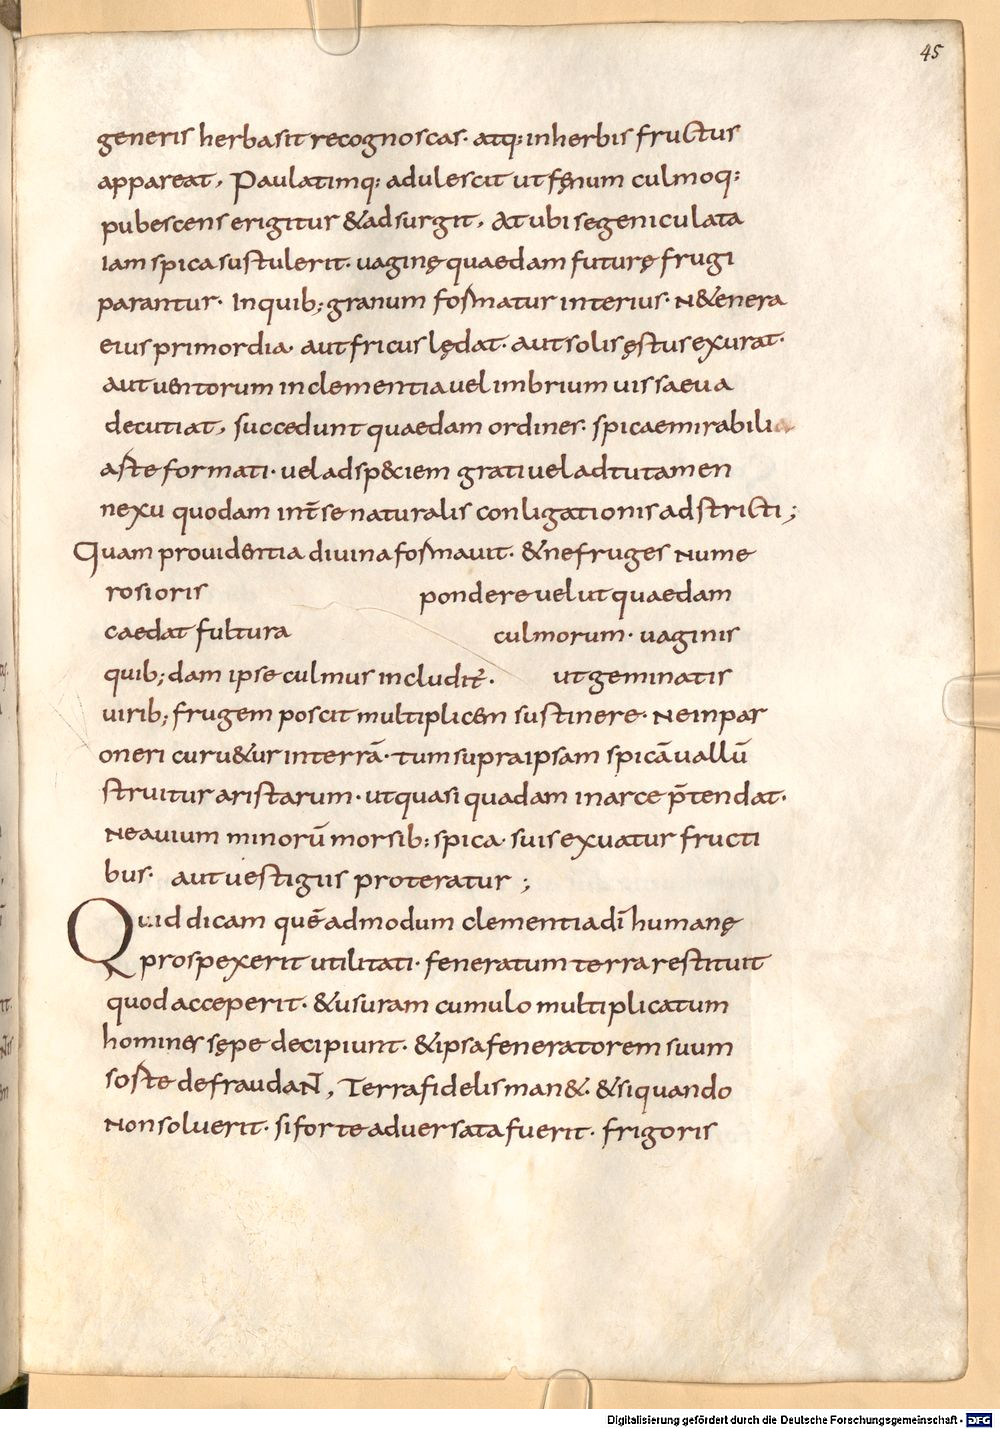 45
generis herbasit recognoscas· atq: inherbis fructus
appareat, Paulatimq: adulescit ut fęnum culmoq:
pubescens erigitur &adsurgit, At ubi segeniculata
iam spica sustulerit· uaginę quaedam futurę frugi
parantur· Inquib; granum formatur interius· N&enera
eius primordia· aut fricus lędat· aut solis ęstus exurat·
aut uentorum inclementia uel imbrium uis saeua
decutiat, succedunt quaedam ordines· spicae mirabilia
aste formati· uel adsp&iem grati uel ad tutamen
nexu quodam int̄ se naturalis conligationis adstricti;
Quam prouidentia diuina formauit· &ne fruges nume
rosioris pondere uelut quaedam
caedat fultura culmorum· uaginis
quib; dam ipse culmus includit̄· ut geminatis
uirib; frugem poscit multiplicem sustinere· Ne inpar
oneri curu&ur interrā· tum supra ipsam spicā uallū
struitur aristarum· ut quasi quadam in arce p̄tendat·
Ne auium minorū morsib: spica· suis exuatur fructi
bus· aut uestigiis proteratur ;
Quid dicam quē admodum clementia dī humanę
prospexerit utilitati· feneratum terra restituit
quod acceperit· &usuram cumulo multiplicatum
homines sępe decipiunt· &ipsa feneratorem suum
soste defraudaN̄, Terra fidelis man&· &siquando
Non soluerit· si forte aduersata fuerit· frigoris
Digitalisierung gefördert durch die Deutsche Forschungsgemeinschaft - DFG